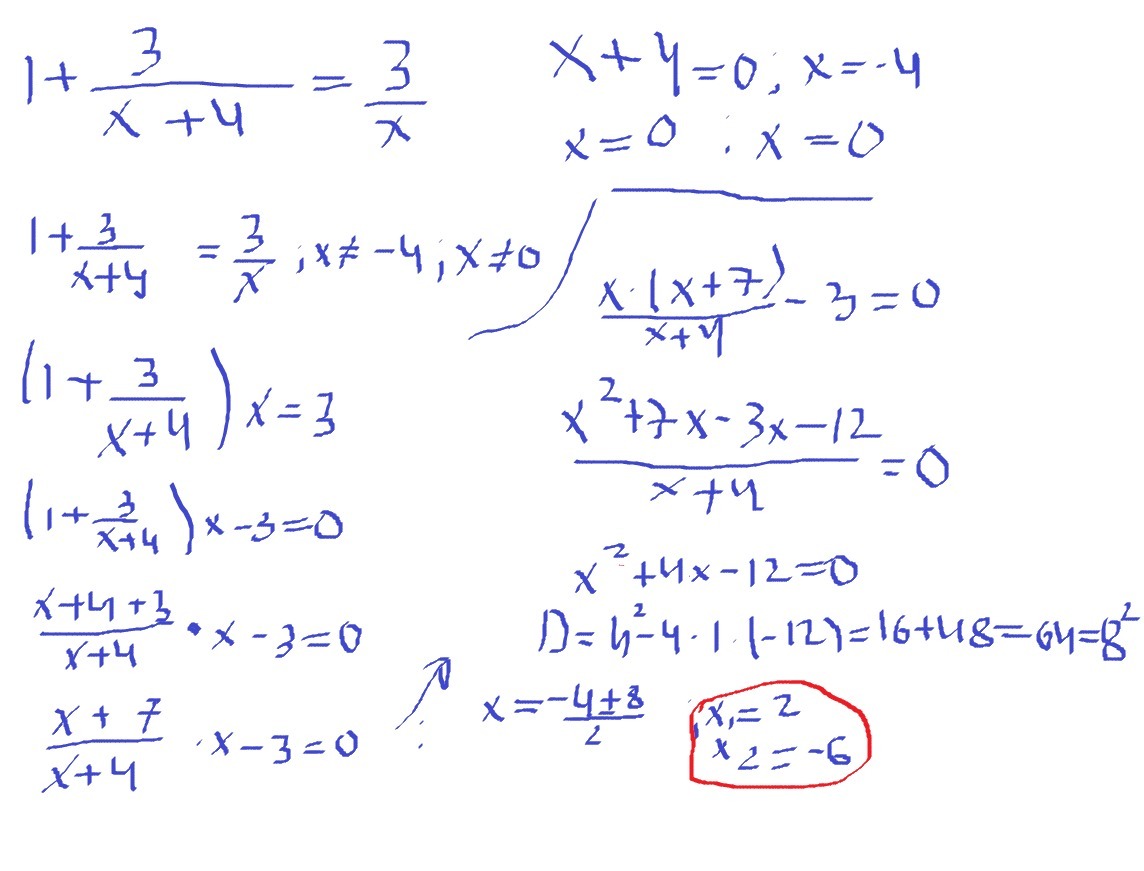 1 + 3/(x + 4) = 3/x
1 + 3/(x+4) = 3/x ; x ≠ -4 ; x ≠ 0
(1 + 3/(x+4)) x = 3
(1 + 3/(x+4)) x - 3 = 0
(x+4+3)/(x+4) · x - 3 = 0
(x + 7)/(x+4) · x - 3 = 0
x + 4 = 0 ; x = -4
x = 0 ; x = 0
x · (x + 7)/(x+4) - 3 = 0
(x² + 7x - 3x - 12)/(x + 4) = 0
x² + 4x - 12 = 0
D = 4² - 4 · 1 · (-12) = 16 + 48 = 64 = 8²
x = (-4 ± 8)/2 ; x₁ = 2
x₂ = -6